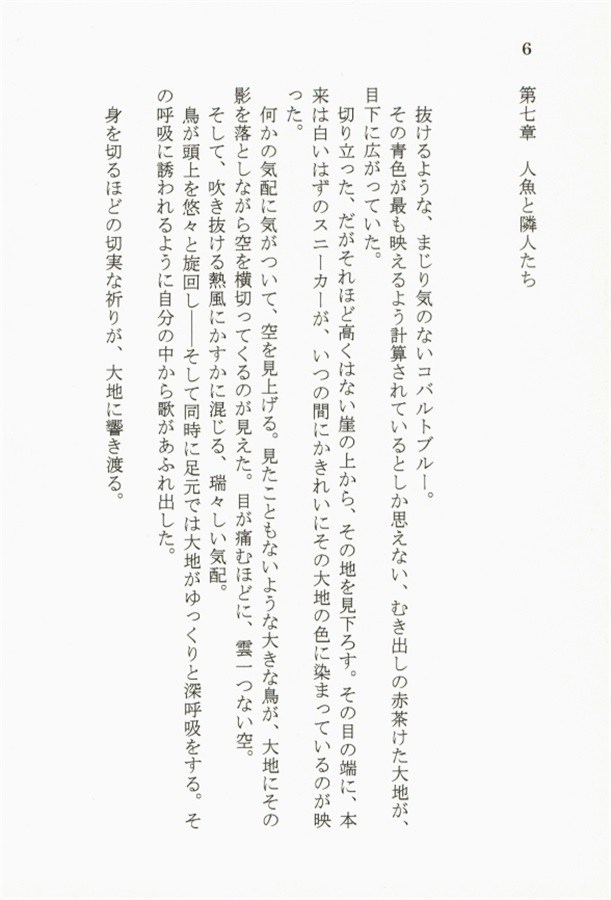 6
第七章　人魚と隣人たち
抜けるような、まじり気のないコバルトブルー。
その青色が最も映えるよう計算されているとしか思えない、むき出しの赤茶けた大地が、
目下に広がっていた。
切り立った、だがそれほど高くはない崖の上から、その地を見下ろす。その目の端に、本
来は白いはずのスニーカーが、いつの間にかきれいにその大地の色に染まっているのが映
った。
何かの気配に気がついて、空を見上げる。見たこともないような大きな鳥が、大地にその
影を落としながら空を横切ってくるのが見えた。目が痛むほどに、雲一つない空。
そして、吹き抜ける熱風にかすかに混じる、瑞々しい気配。
鳥が頭上を悠々と旋回し――そして同時に足元では大地がゆっくりと深呼吸をする。そ
の呼吸に誘われるように自分の中から歌があふれ出した。
身を切るほどの切実な祈りが、大地に響き渡る。